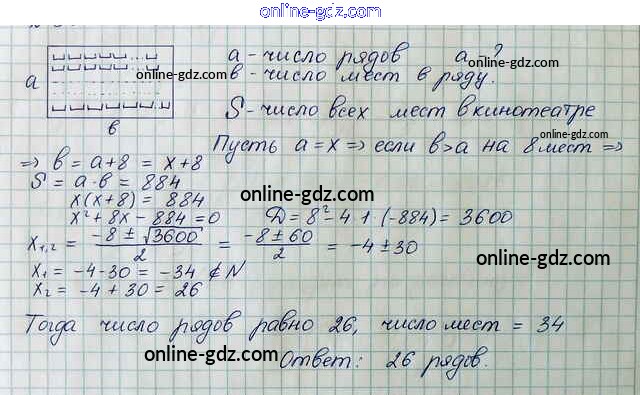 online-gdz.com
a - число рядов a - ?
в - число мест в ряду.
online-gdz.com
online-gdz.com
a
в
S - число всех мест в кинотеатре
online-gdz.com
Пусть a = x ⇒ если в>a на 8 мест ⇒
⇒ в = a+8 = x+8
S = a·в = 884
x(x+8) = 884
online-gdz.com
x²+8x-884=0 D = 8²-4·1·(-884) = 3600
x₁,₂ = (-8 ± √3600)/2 = (-8 ± 60)/2 = -4 ± 30
online-gdz.com
x₁ = -4-30 = -34 ∉ N
x₂ = -4+30 = 26
online-gdz.com
Тогда число рядов равно 26, число мест = 34
online-gdz.com
Ответ: 26 рядов.
online-gdz.com